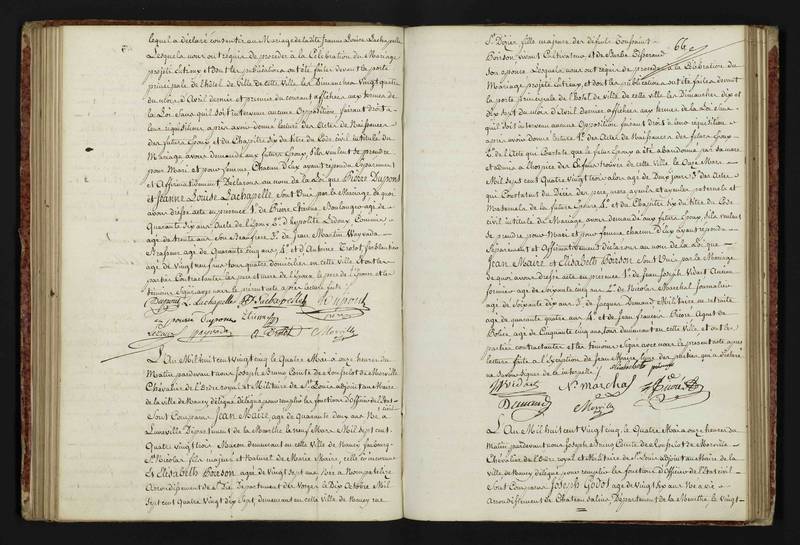 lequel a déclaré consentir au Mariage de la dite Jeanne Louise Lachapelle
Lesquels nous ont requis de procéder à la Célébration du Mariage
projeté entr'eux et dont les publications ont été faites devant la porte
principale de l'hôtel de Ville de cette Ville les Dimanches Vingt quatre
du mois d'Avril dernier et premier du courant affichées aux termes de
la Loi sans qu'il soit intervenu aucune Opposition, faisant droit à
leur réquisition, après avoir donné lecture des Actes de Naissances
des futurs Epoux et du Chapitre six du titre du Code civil intitulé du
Mariage avons demandé aux futurs Epoux s'ils veulent se prendre
pour Mari et pour femme, Chacun d'eux ayant répondu séparément
et Affirmativement Déclarons au nom de la Loi que Pierre Dupont
et Jeanne Louise Lachapelle sont Unis par le Mariage de quoi
avons dressé acte en présence 1° de Pierre Etienne Boulanger agé de
Quarante six ans Oncle de l'Epoux 2° d'hypolite Ledoux Commis
agé de trente ans son Beaufrère 3° de Jean Martin
Brasseur agé de Quarante cinq ans 4° et d'Antoine Trotot ferblantier
agé de Vingt neuf ans tous quatre domiciliés en cette Ville et ont les
parties Contractantes les père et mère de l'Epouse, le père de l'Epoux et les
témoins signé avec nous le présent acte après lecture faite
Dupont L. Lachapelle Lachapelle Dupont
Etienne
A. Trotot Morville
L'An Mil huit cent Vingt cinq le Quatre Mai à onze heures du
Matin pardevant nous Joseph Bruno Comte de Morville
Chevalier de l'Ordre royal et Militaire de St Louis adjoint au Maire
de la Ville de Nancy délégué pour remplir les fonctions d'Officier de l'Etat
civil
Sont Comparus Jean Maire, agé de Quarante deux ans Né à
Luneville Département de la Meurthe le neuf Mars Mil sept cent
Quatre Vingt trois Maçon demeurant en cette Ville de Nancy faubourg
St Nicolas fils majeur et Naturel de Marie Maire, celle-ci
Et Elisabeth Poirson agée de Vingt sept ans Née à Nompatelize
Arrondissement de St Dié Département des Vosges le Dix Octobre Mil
Sept cent quatre Vingt dix Sept, demeurant en cette Ville de Nancy rue
66
St Dizier fille majeure des défunts Toussaint
Poirson vivant Cultivateur et de Barbe
son épouse Lesquels nous ont requis de procéder à la Célébration du
Mariage projeté entr'eux et dont les publications ont été faites devant
la porte principale de l'hôtel de Ville de cette ville les Dimanches Dix et
Dix sept du mois d'Avril dernier affichées aux termes de la Loi sans
qu'il soit intervenu aucune Opposition, faisant droit à leur réquisition
après avoir donné lecture 1° des Actes de Naissances des futurs Epoux
2° de l'Acte qui Constate que le futur Epoux a été abandonné par sa mère
et admis à l'hospice des Enfans trouvés de cette Ville le Onze Mars
Mil sept cent Quatre Vingt trois alors agé de Deux jours 3° des actes
qui Constatent du Décès des père, mère ayeuls et ayeules paternels et
Maternels de la future Epouse 4° et du Chapitre six du titre du Code
civil intitulé du Mariage avons demandé aux futurs Epoux s'ils veulent
se prendre pour Mari et pour femme chacun d'eux ayant répondu
Séparément et Affirmativement déclarons au nom de la Loi que
Jean Maire et Elisabeth Poirson Sont Unis par le Mariage
de quoi avons dressé acte en présence 1° de Jean Joseph Vidart Ancien
fermier agé de Soixante cinq ans 2° de Nicolas Marchal Journalier
agé de Soixante dix ans 3° de Jacques Dumond Militaire en retraite
agé de quarante quatre ans 4° et de Jean françois Pierre Agent de
Police agé de Cinquante cinq ans tous demeurant en cette Ville et ont les
parties contractantes et les témoins signé avec nous le présent acte après
lecture faite à l'Exception de Jean Maire, l'une des parties qui a déclaré
ne savoir signer de ce interpellé
Vidart N. Marchal
Dumond Morville
L'An Mil huit cent Vingt cinq, le Quatre Mai à onze heures du
Matin pardevant nous Joseph Bruno Comte de Morville
Chevalier de l'Ordre royal et Militaire de St Louis adjoint au Maire de la
Ville de Nancy délégué pour remplir les fonctions d'Officier de l'Etat civil
Sont Comparus Joseph Godot agé de Vingt six ans Né à Vic
Arrondissement de Chateau salins, Département de la Meurthe le Vingt